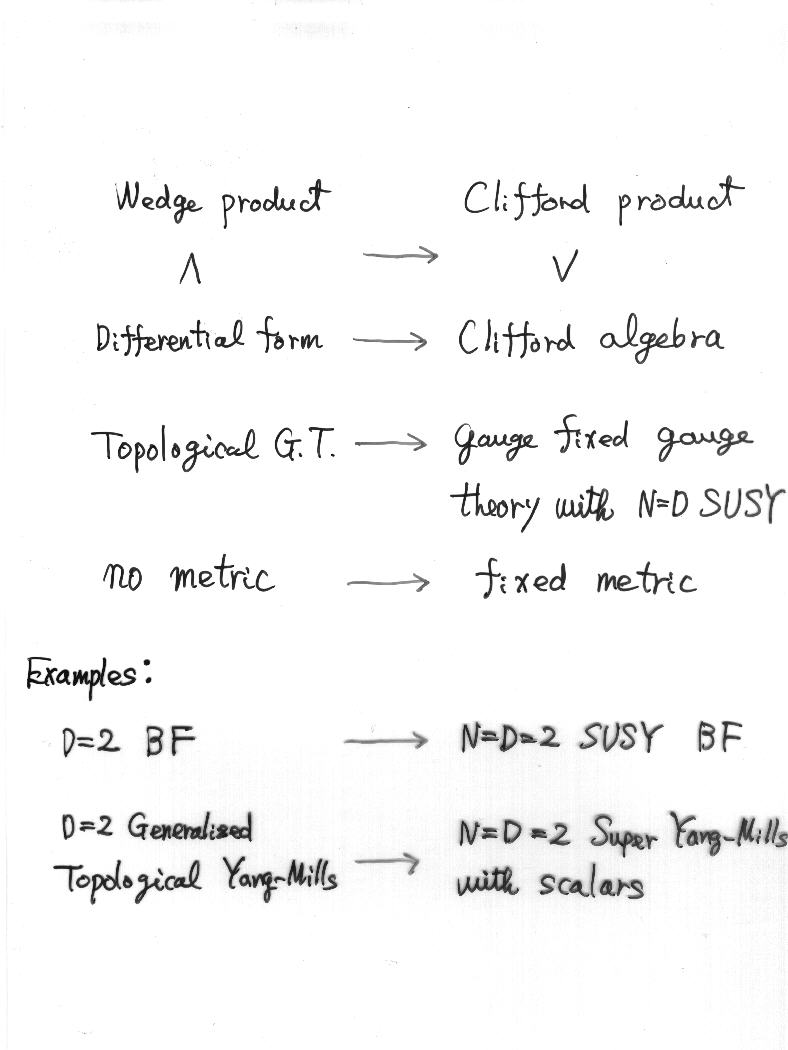 Wedge product Clifford product
∧ → ∨
Differential form → Clifford algebra
Topological G.T. → gauge fixed gauge
theory with N=D SUSY
no metric → fixed metric
Examples:
D=2 BF → N=D=2 SUSY BF
D=2 Generalized N=D=2 Super Yang-Mills
Topological Yang-Mills → with scalars